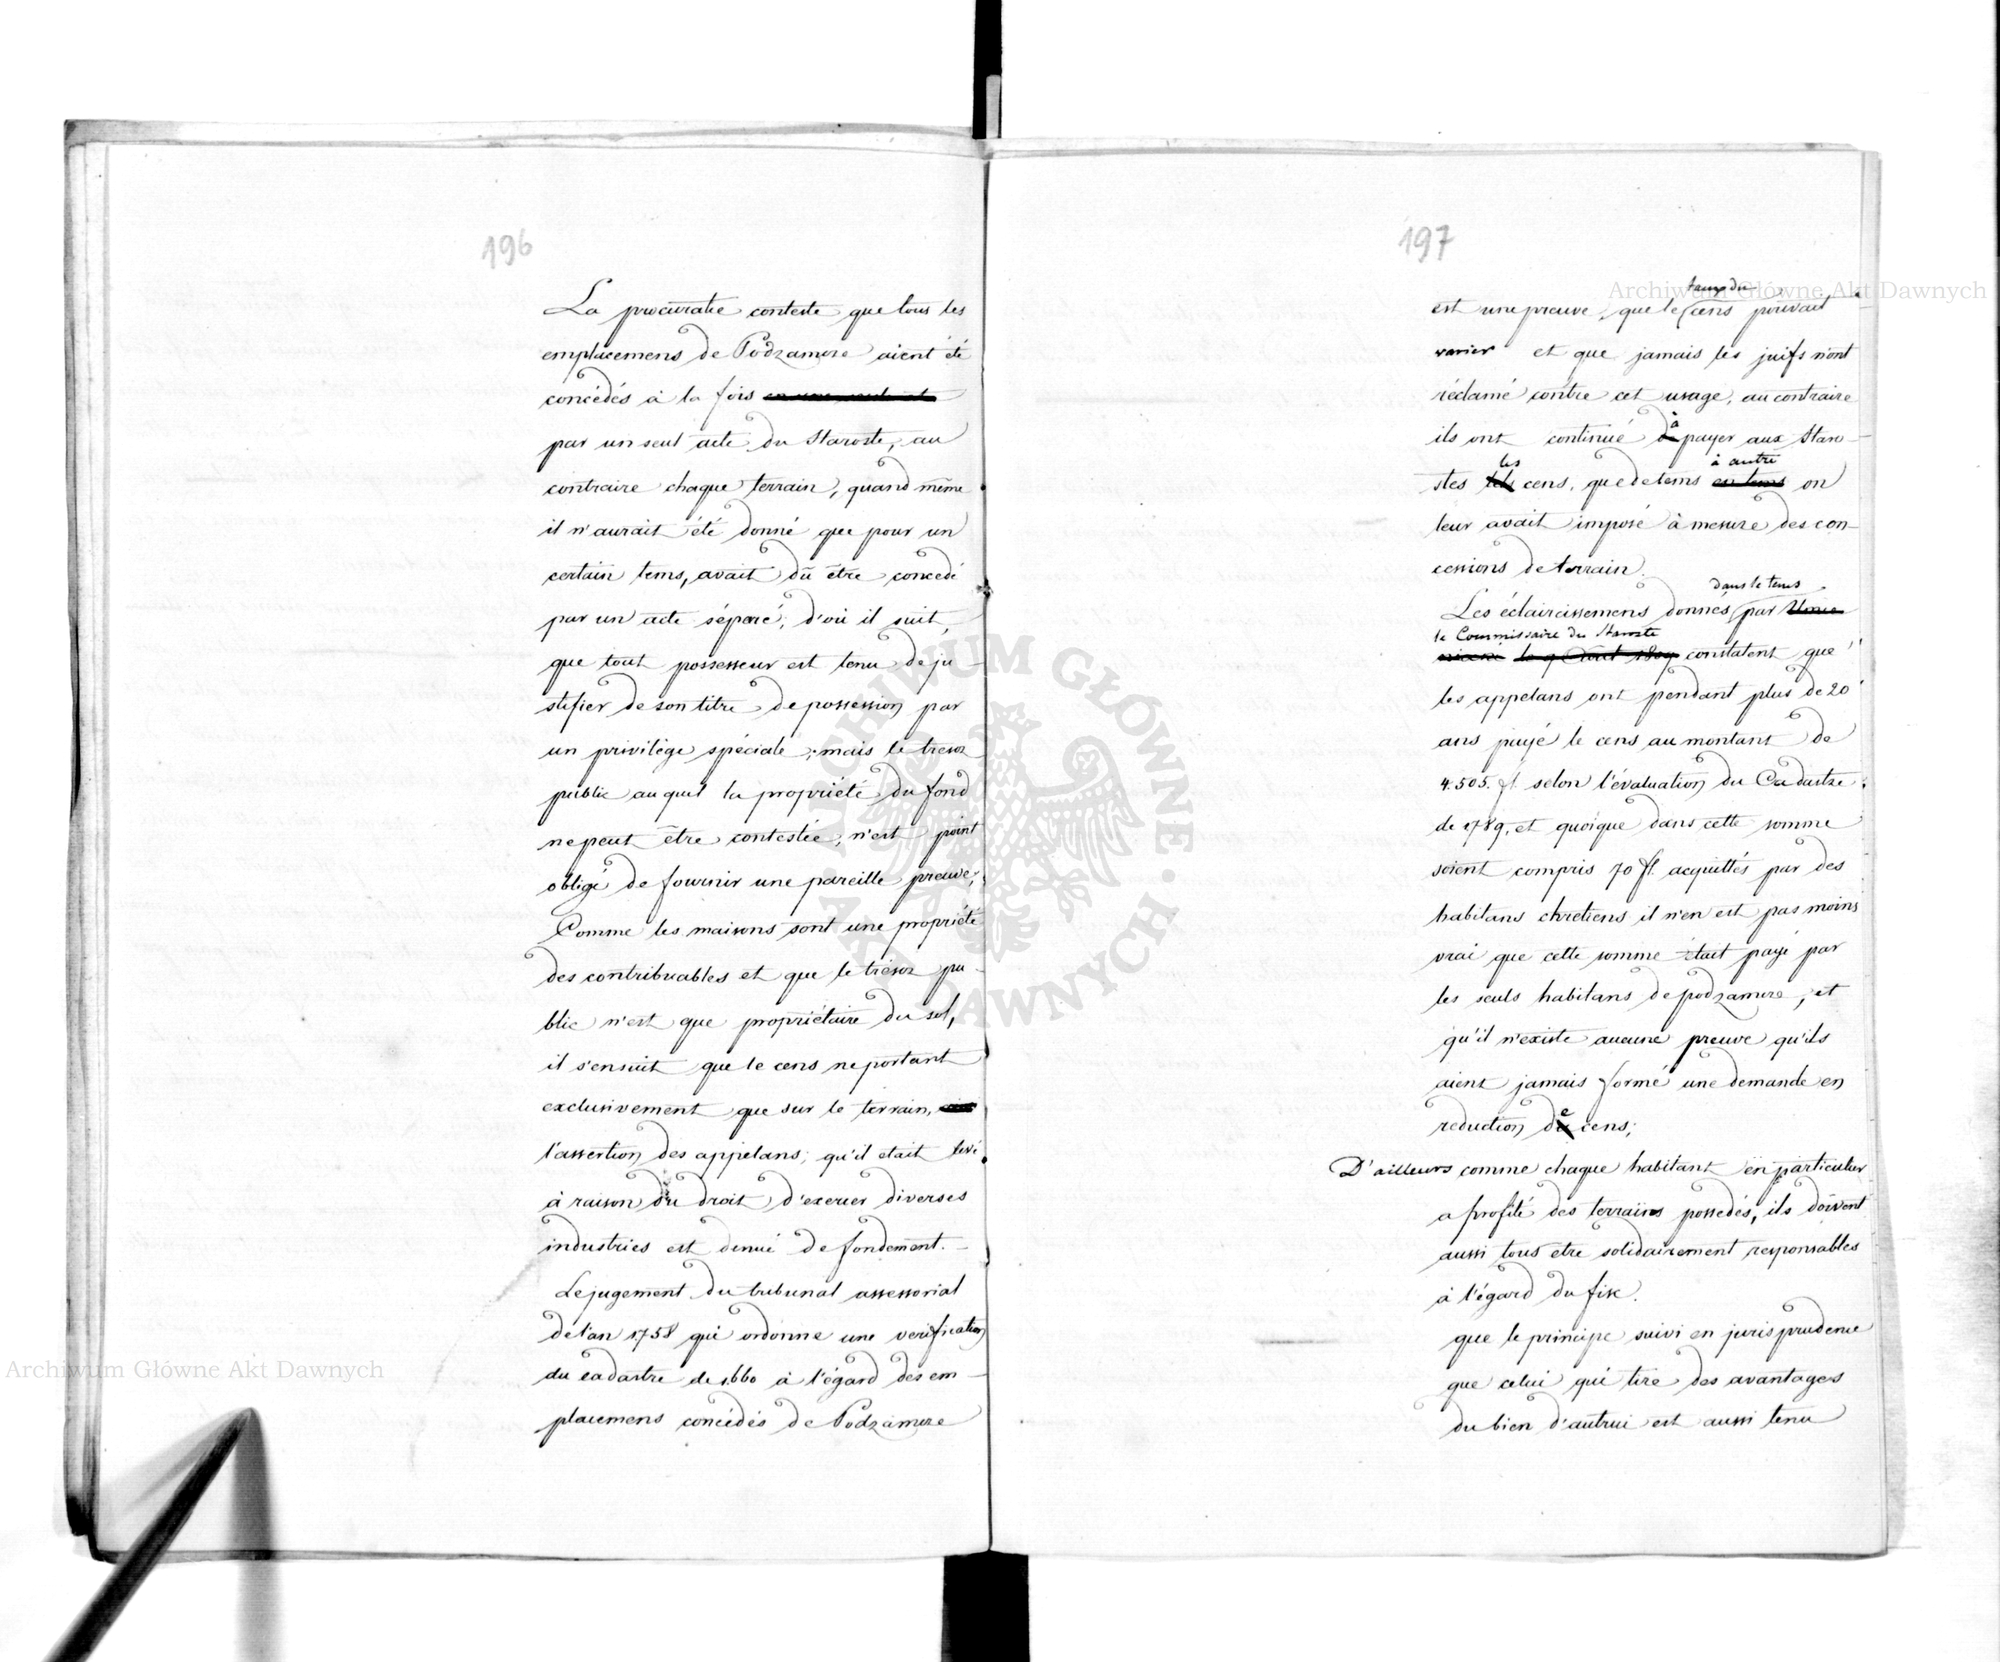 196
La procuratie conteste que tous les
emplacemens de Podzamcze aient été
concédés à la fois
par un seul acte du Staroste, au
contraire chaque terrain, quand même
il n'aurait été donné que pour un
certain tems, avait dû être concedé
par un acte séparé, d'où il suit,
que tout possesseur est tenu de ju-
stifier de son titre de possession par
un privilège spéciale; mais le tresor
public auquel la propriété du fond
ne peut être contestée, n'est point
obligé de fournir une pareille preuve;
Comme les maisons sont une propriété
des contribuables et que le trésor pu-
blic n'est que propriétaire du sol,
il s'ensuit que le cens ne portant
exclusivement que sur le terrain,
l'assertion des appelans, qu'il etait levé
à raison du droit d'exercer diverses
industries est denué de fondement.
Le jugement du tribunal assessorial
de l'an 1758 qui ordonne une verification
du cadastre de 1660 à l'égard des em-
placemens concédés de Podzamcze
197
taux du
est une preuve, que le cens pouvait
varier et que jamais les juifs n'ont
réclamé contre cet usage, au contraire
à
ils ont continué payer aux Staro-
les à autre
stes cens, que de tems en tems on
leur avait imposé à mesure des con-
cessions de terrain.
dans le tems
Les éclaircissemens donnés par
le Commissaire du Staroste
le 9 Aout 1809 constatent que
les appelans ont pendant plus de 20
ans payé le cens au montant de
4.505. fl. selon l'évaluation du Cadastre
de 1789, et quoique dans cette somme
soient compris 70 fl. acquittés par des
habitans chretiens il n'en est pas moins
vrai que cette somme était payé par
les seuls habitans de podzamcze, et
qu'il n'existe aucune preuve qu'ils
aient jamais formé une demande en
reduction de cens;
D'ailleurs comme chaque habitant en particulier
a profité des terrains possedés, ils doivent
aussi tous etre solidairement responsables
à l'égard du fisc.
que le principe suivi en jurisprudence
que celui qui tire des avantages
du bien d'autrui est aussi tenu
Archiwum Główne Akt Dawnych
Archiwum Główne Akt Dawnych
ARCHIWUM GŁÓWNE AKT DAWNYCH